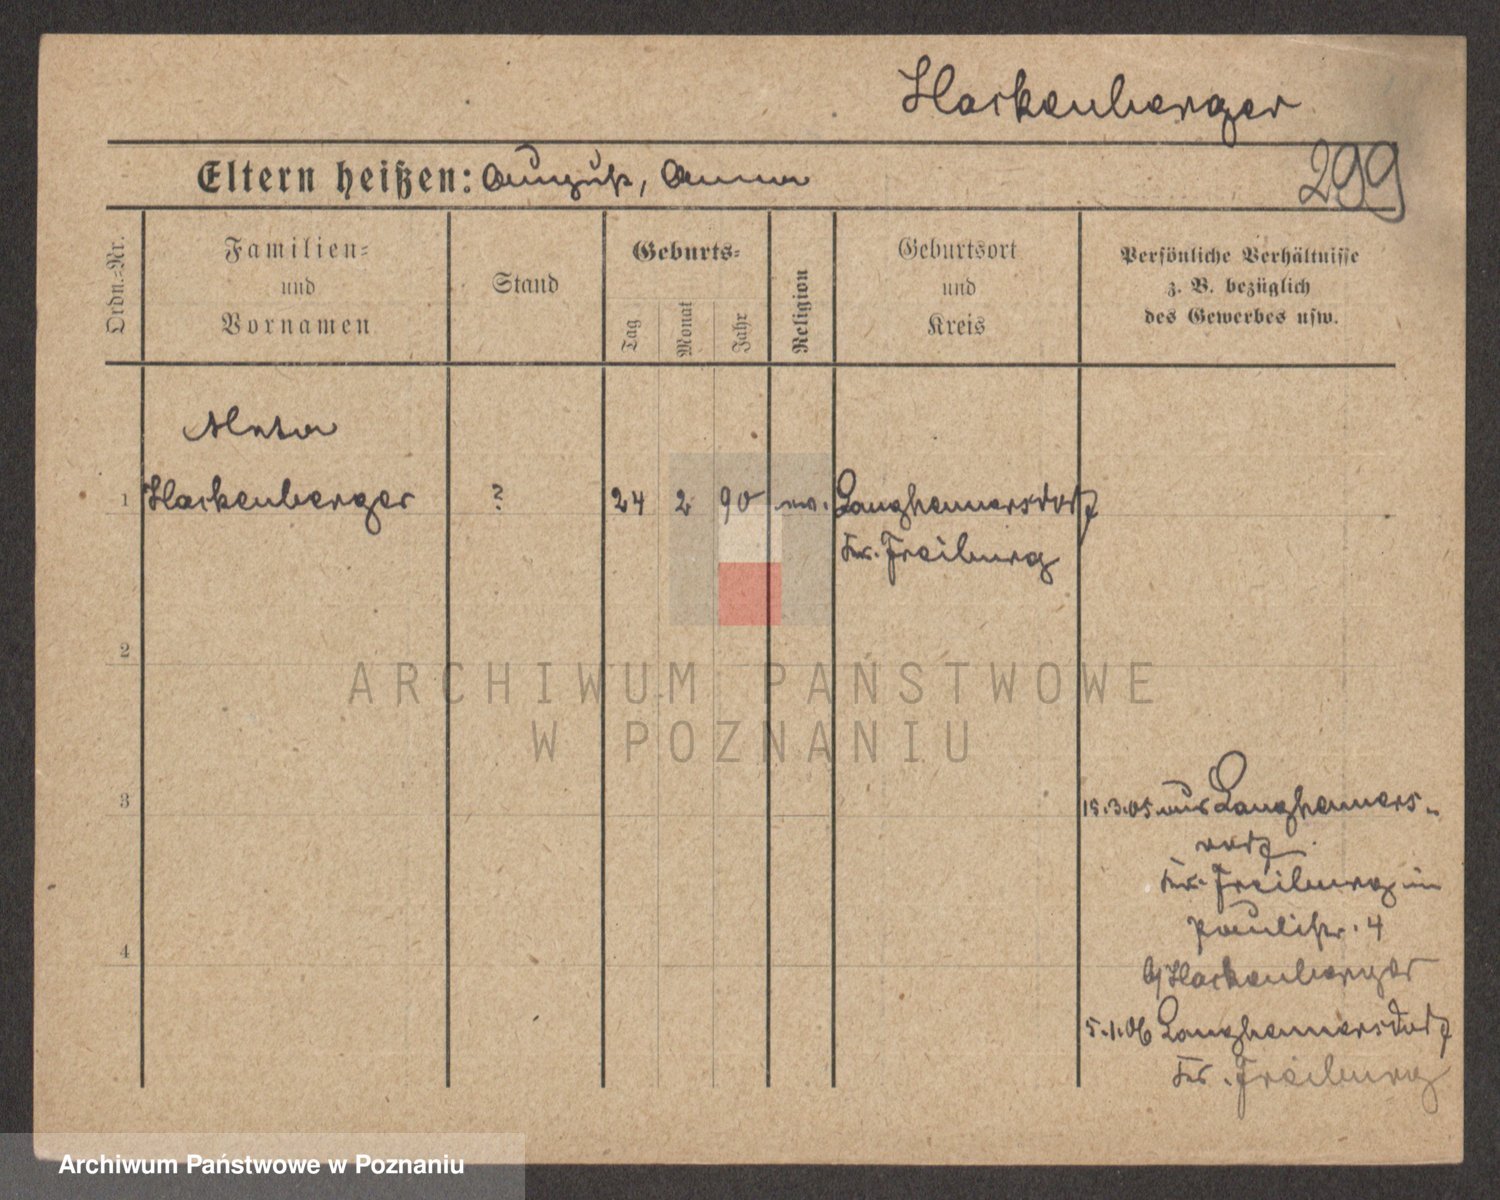 Hackenberger
299
Eltern heißen: August, Anna
Ordn.-Nr.
Familien-
und
Vornamen
Stand
Geburts-
Tag
Monat
Jahr
Religion
Geburtsort
und
Kreis
Persönliche Verhältnisse
z. B. bezüglich
des Gewerbes usw.
Meta
1 Hackenberger ? 24 2 90 ev. Langhennersdorf
Kr. Freiburg
2
3
15.3.05 aus Langhenners-
dorf
Kr. Freiburg in
Paulistr. 4
b/ Hackenberger
4
5.1.06 Langhennersdorf
Kr. Freiburg
ARCHIWUM PAŃSTWOWE
W POZNANIU
Archiwum Państwowe w Poznaniu